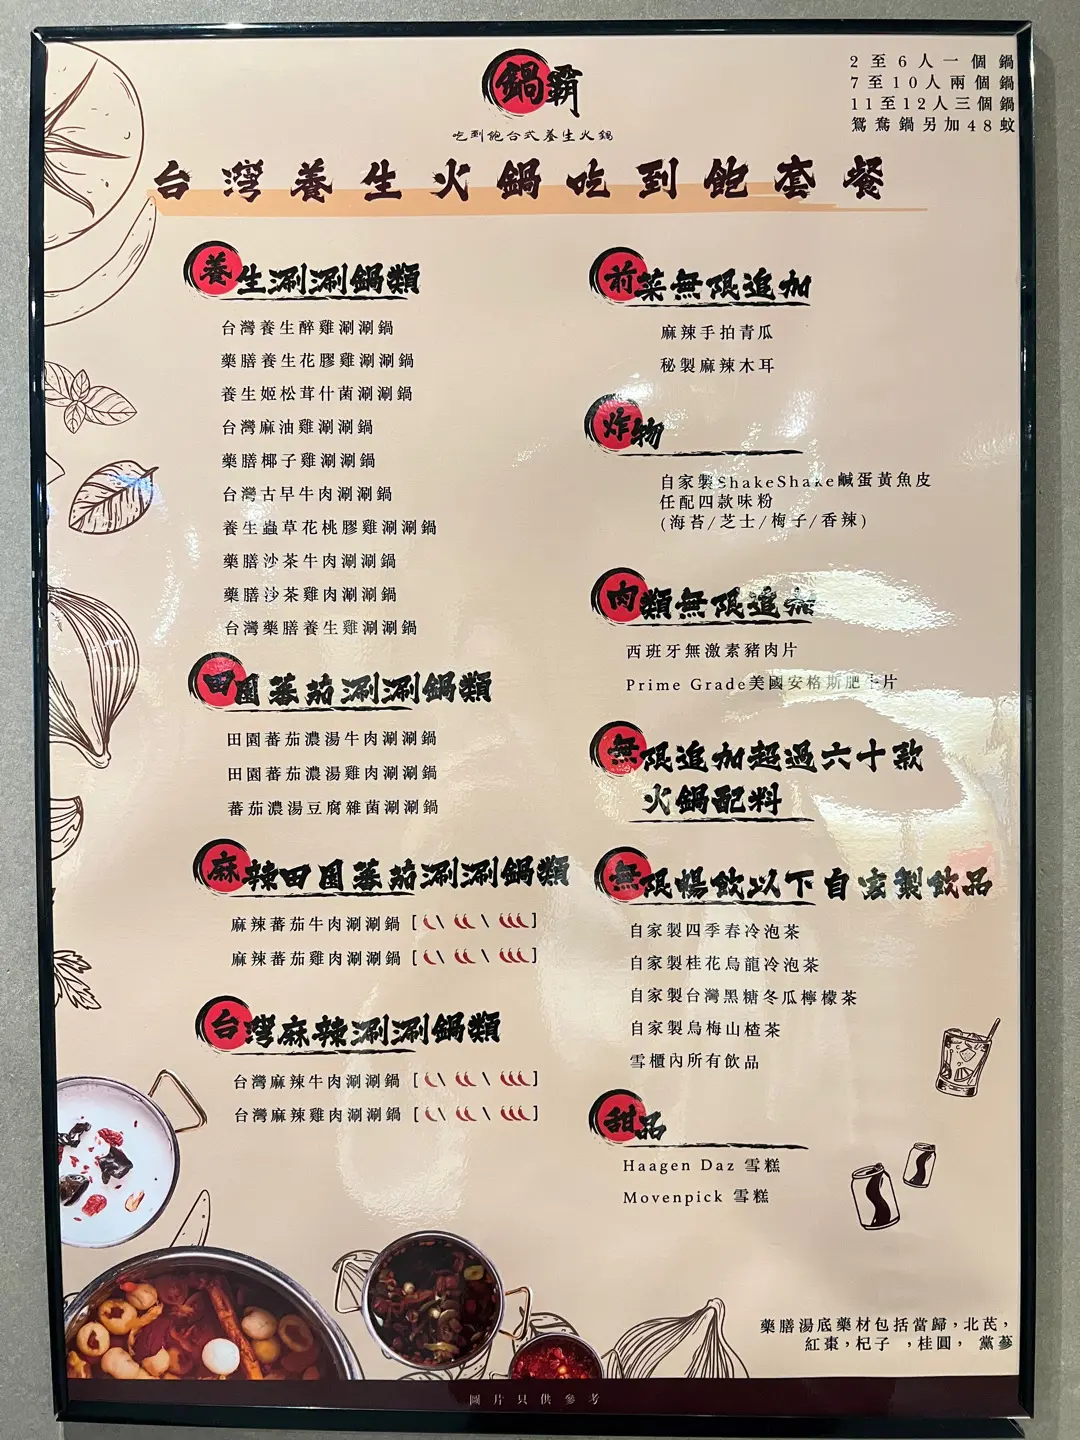 鍋霸
吃到飽台式養生火鍋
2至6人一個鍋
7至10人兩個鍋
11至12人三個鍋
鴛鴦鍋另加48蚊
台灣養生火鍋吃到飽套餐
養生涮涮鍋類
台灣養生醉雞涮涮鍋
藥膳養生花膠雞涮涮鍋
養生姬松茸什菌涮涮鍋
台灣麻油雞涮涮鍋
藥膳椰子雞涮涮鍋
台灣古早牛肉涮涮鍋
養生蟲草花桃膠雞涮涮鍋
藥膳沙茶牛肉涮涮鍋
藥膳沙茶雞肉涮涮鍋
台灣藥膳養生雞涮涮鍋
田園蕃茄涮涮鍋類
田園蕃茄濃湯牛肉涮涮鍋
田園蕃茄濃湯雞肉涮涮鍋
蕃茄濃湯豆腐雜菌涮涮鍋
麻辣田園蕃茄涮涮鍋類
麻辣蕃茄牛肉涮涮鍋 [ \ \ ]
麻辣蕃茄雞肉涮涮鍋 [ \ \ ]
台灣麻辣涮涮鍋類
台灣麻辣牛肉涮涮鍋 [ \ \ ]
台灣麻辣雞肉涮涮鍋 [ \ \ ]
前菜無限追加
麻辣手拍青瓜
秘製麻辣木耳
炸物
自家製ShakeShake鹹蛋黃魚皮
任配四款味粉
(海苔/芝士/梅子/香辣)
肉類無限追加
西班牙無激素豬肉片
Prime Grade美國安格斯肥牛片
無限追加超過六十款
火鍋配料
無限暢飲以下自家製飲品
自家製四季春冷泡茶
自家製桂花烏龍冷泡茶
自家製台灣黑糖冬瓜檸檬茶
自家製烏梅山楂茶
雪櫃內所有飲品
甜品
Haagen Daz 雪糕
Movenpick 雪糕
藥膳湯底藥材包括當歸，北芪，
紅棗，杞子 ，桂圓， 黨蔘
圖片只供參考